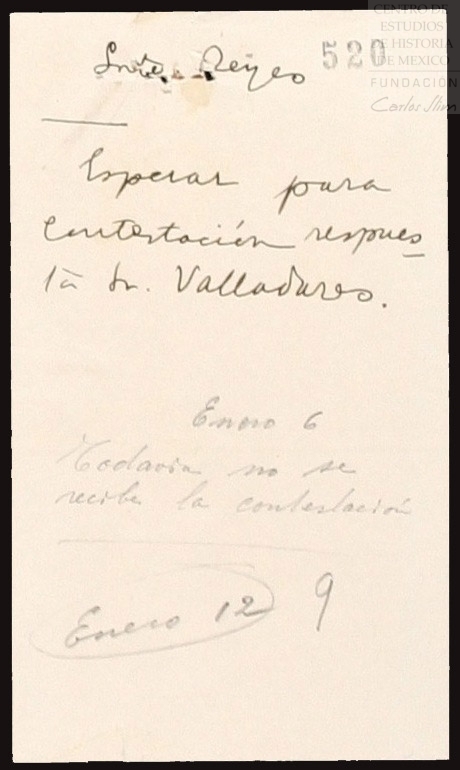 Reyes 520
CENTRO DE
ESTUDIOS
DE HISTORIA
DE MEXICO
FUNDACIÓN
Carlos Slim
Esperar para
contestación respues
ta Sr. Valladares.
Enero 6
Todavia no se
recibe la contestación
Enero 12 9